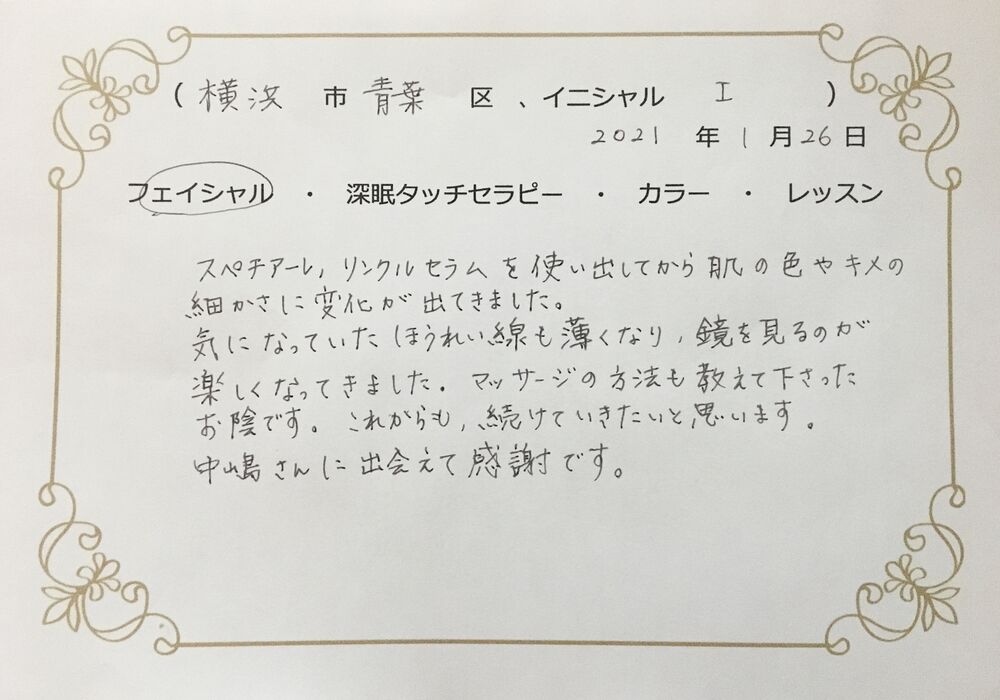 ( 横浜 市 青葉 区 、イニシャル I )
2021 年 1 月 26 日
フェイシャル ・ 深眠タッチセラピー ・ カラー ・ レッスン
スペチアーレ, リンクルセラムを使い出してから肌の色やキメの
細かさに変化が出てきました。
気になっていたほうれい線も薄くなり, 鏡を見るのが
楽しくなってきました. マッサージの方法も教えて下さった
お陰です。これからも, 続けていきたいと思います。
中嶋さんに出会えて感謝です。